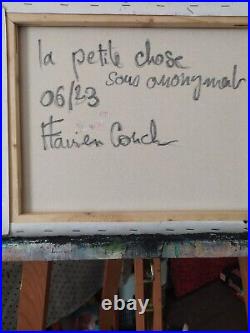 la petite chose
sous anonymat
06/23
Flavien Couch